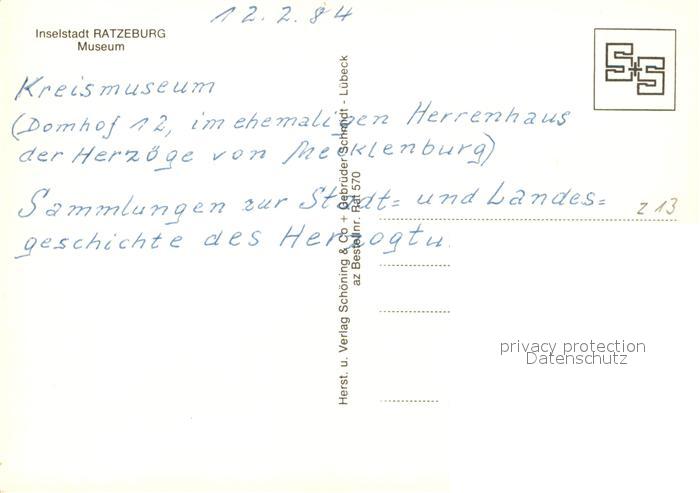 12.2.84
Inselstadt RATZEBURG
Museum
S+S
Kreismuseum
(Domhof 12, im ehemaligen Herrenhaus
der Herzöge von Mecklenburg)
Sammlungen zur Stadt= und Landes=
geschichte des Herzogtu.
z 13
Herst. u. Verlag Schöning & Co + Gebrüder Schmidt - Lübeck
az Bestellnr. Rat 570
privacy protection
Datenschutz